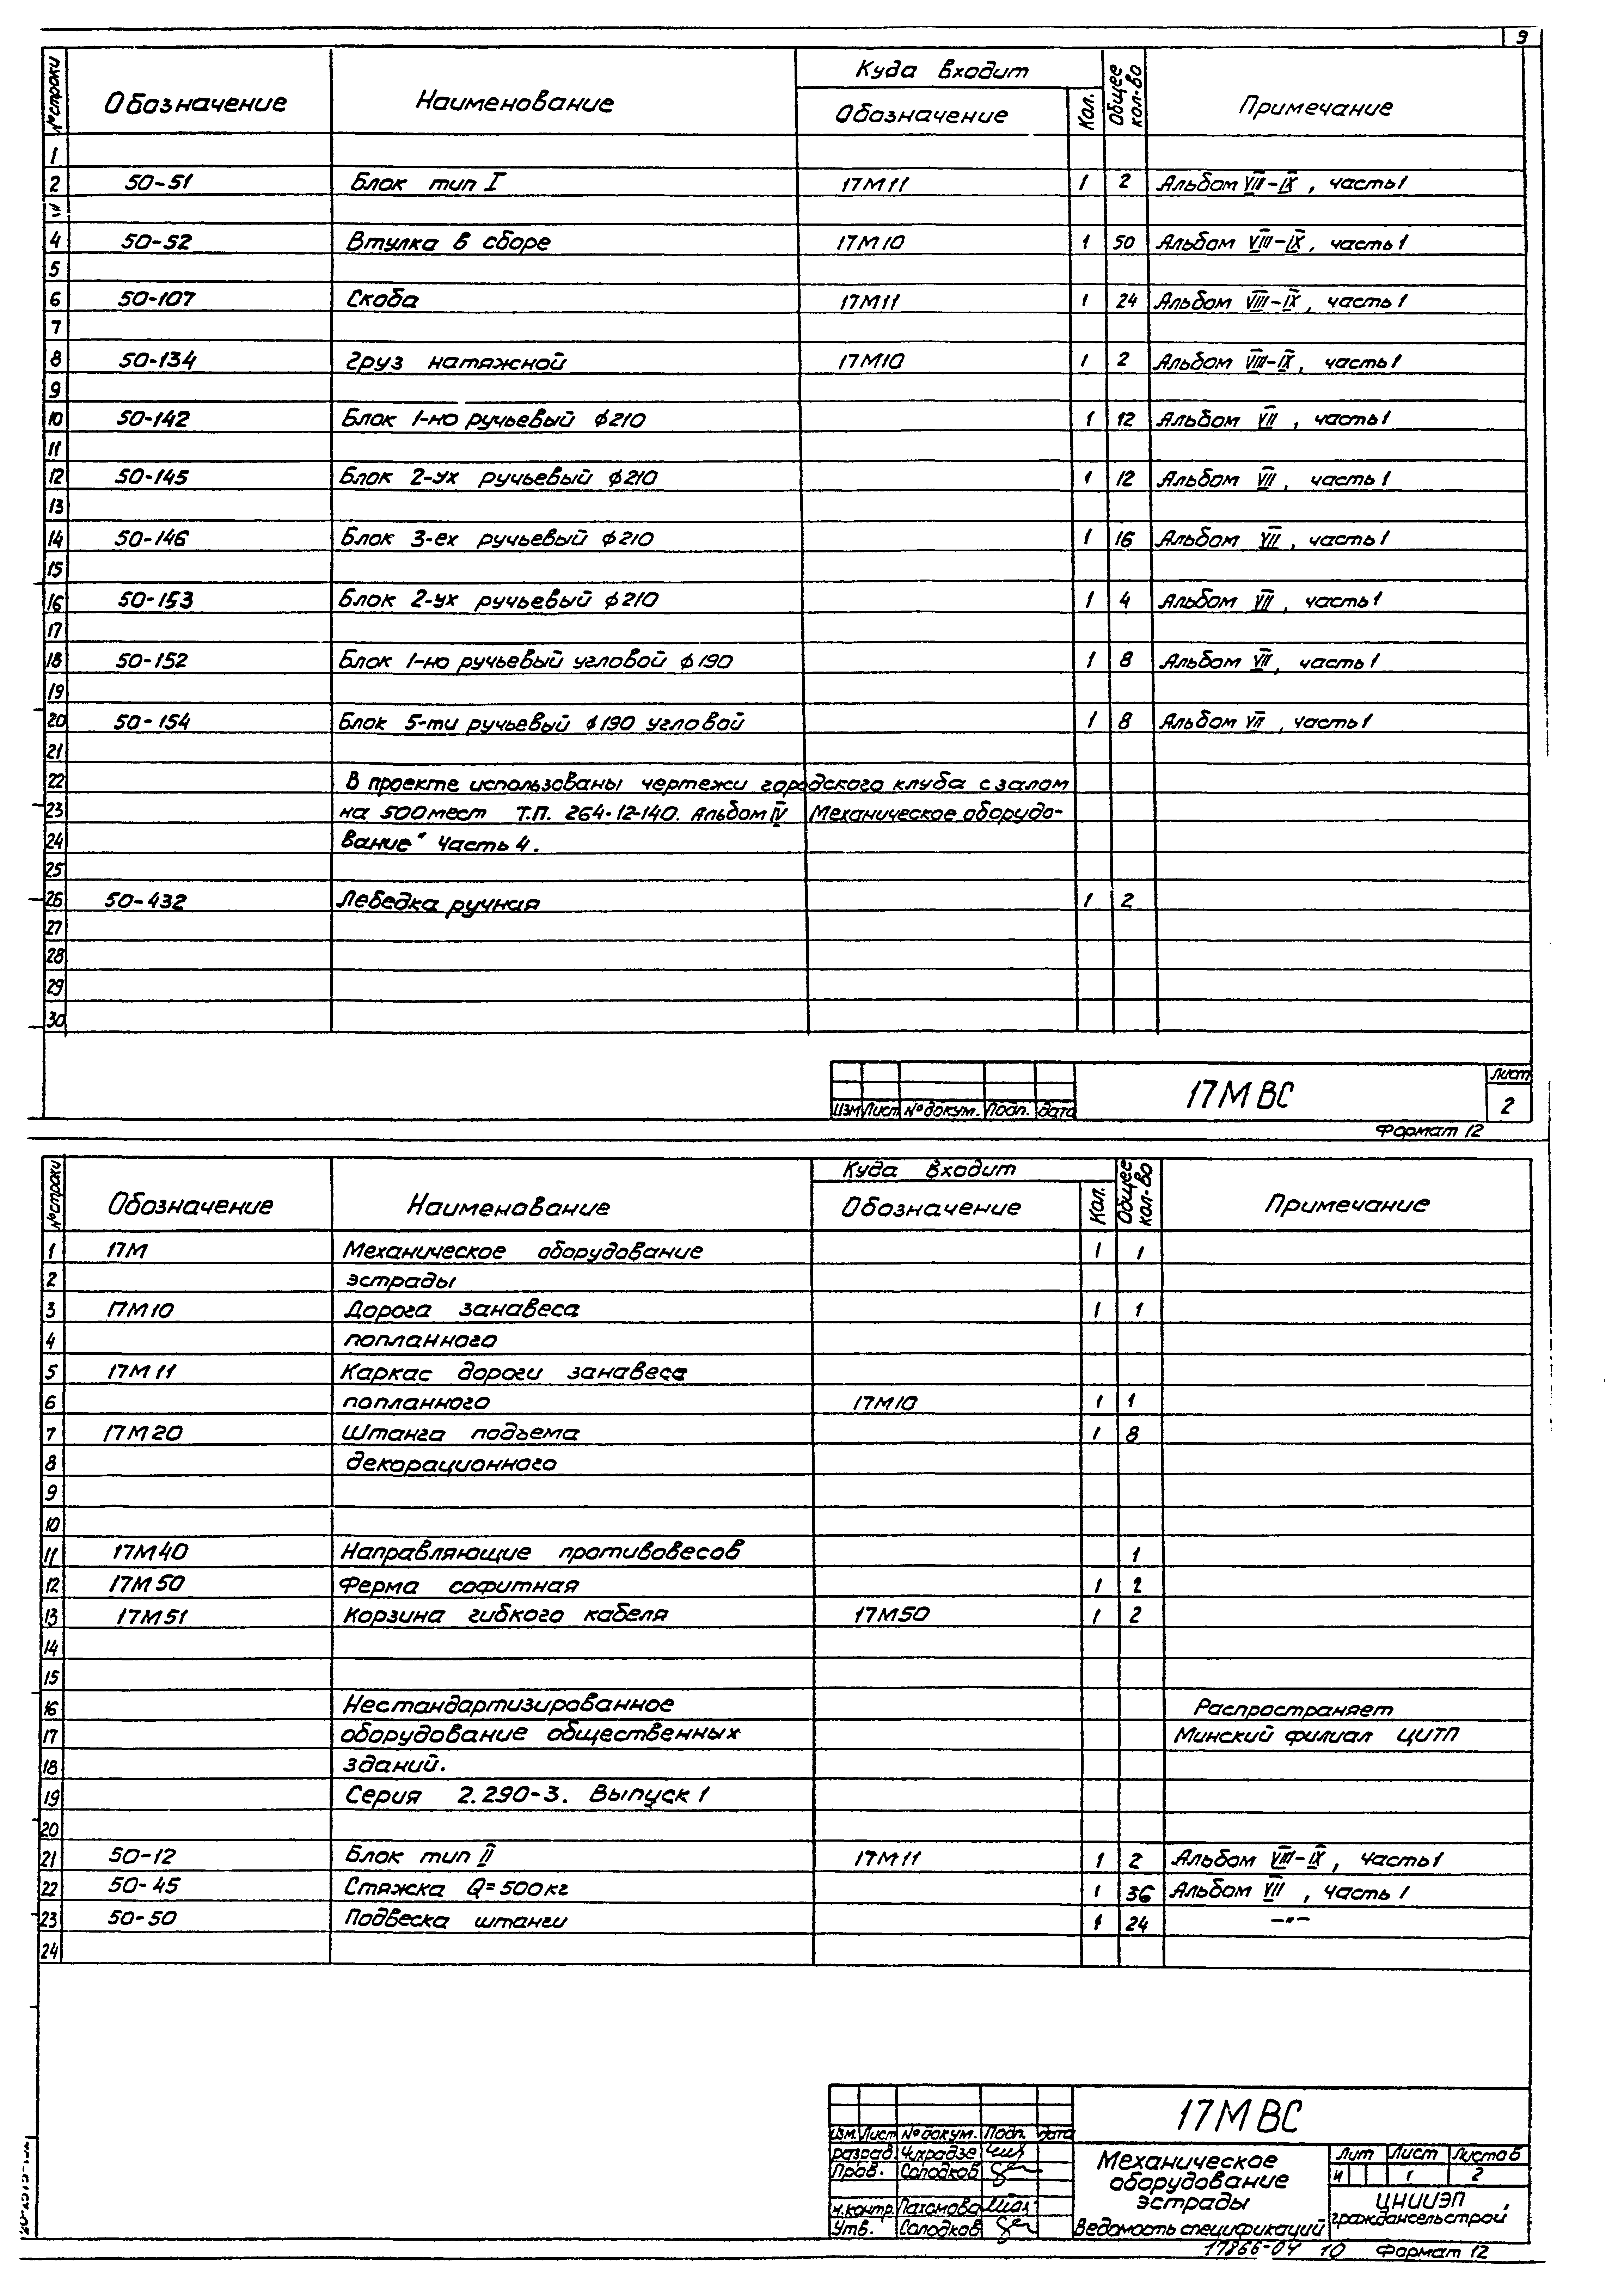 9
№ строки Обозначение Наименование Куда входит Общее кол-во Примечание
Обозначение Кол.
1
2 50-51 Блок тип I 17М11 1 2 Альбом VIII-IX, часть 1
4 50-52 Втулка в сборе 17М10 1 50 Альбом VIII-IX, часть 1
5
6 50-107 Скоба 17М11 1 24 Альбом VIII-IX, часть 1
7
8 50-134 Груз натяжной 17М10 1 2 Альбом VIII-IX, часть 1
9
10 50-142 Блок 1-но ручьевый ϕ210 1 12 Альбом VII, часть 1
11
12 50-145 Блок 2-ух ручьевый ϕ210 1 12 Альбом VII, часть 1
13
14 50-146 Блок 3-ех ручьевый ϕ210 1 16 Альбом VII, часть 1
15
16 50-153 Блок 2-ух ручьевый ϕ210 1 4 Альбом VII, часть 1
17
18 50-152 Блок 1-но ручьевый угловой ϕ190 1 8 Альбом VII, часть 1
19
20 50-154 Блок 5-ти ручьевый ϕ190 угловой 1 8 Альбом VII, часть 1
21
22 В проекте использованы чертежи городского клуба с залом
23 на 500 мест Т.П. 264-12-140. Альбом IV Механическое оборудо-
24 вание" Часть 4.
25
26 50-432 Лебедка ручная 1 2
27
28
29
30
Изм Лист № докум. Подп. Дата 17М ВС Лист 2
Формат 12
№ строки Обозначение Наименование Куда входит Общее кол-во Примечание
Обозначение Кол.
1 17М Механическое оборудование 1 1
2 эстрады
3 17М10 Дорога занавеса 1 1
4 попланного
5 17М11 Каркас дороги занавеса
6 попланного 17М10 1 1
7 17М20 Штанга подъема 1 8
8 декорационного
9
10
11 17М40 Направляющие противовесов 1
12 17М50 Ферма софитная 1 2
13 17М51 Корзина гибкого кабеля 17М50 1 2
14
15
16 Нестандартизированное Распространяет
17 оборудование общественных Минский филиал ЦИТП
18 зданий.
19 Серия 2.290-3. Выпуск 1
20
21 50-12 Блок тип II 17М11 1 2 Альбом VIII-IX, часть 1
22 50-45 Стяжка Q=500кг 1 36 Альбом VII, часть 1
23 50-50 Подвеска штанги 1 24 —"—
24
17М ВС
Изм Лист № докум. Подп. Дата
Разраб. Чихрадзе
Пров. Солодков
Н.контр. Пахомова
Утв. Солодков
Механическое
оборудование
эстрады
Ведомость спецификаций
Лит Лист Листов
И 1 2
ЦНИИЭП
граждансельстрой
17866-04 10 Формат 12